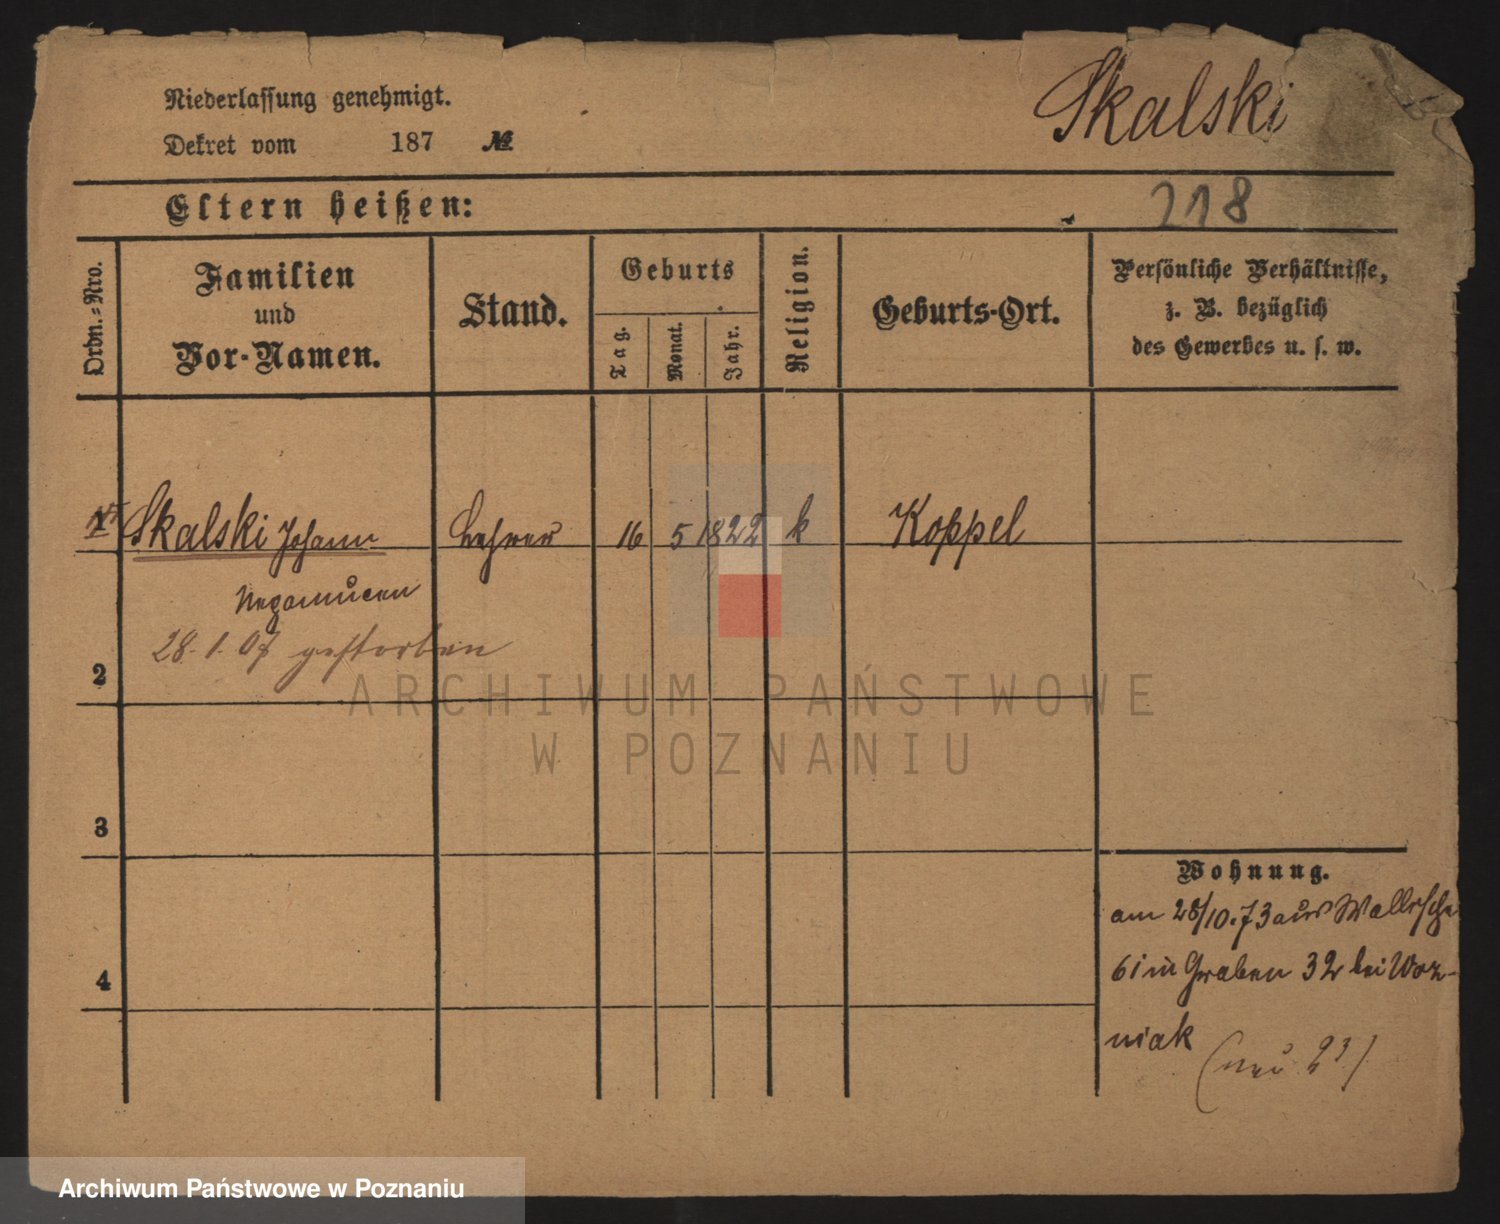 Niederlassung genehmigt.
Dekret vom 187 №
Skalski
Eltern heißen:
218
Ordn.-Nro.
Familien
und
Vor-Namen.
Stand.
Geburts
Tag.
Monat.
Jahr.
Religion.
Geburts-Ort.
Persönliche Verhältnisse,
z. B. bezüglich
des Gewerbes u. s. w.
1 Skalski Johann Lehrer 16 5 1822 k Koppel
Nepomucen
28. 1. 07 gestorben
2
3
4
Wohnung.
am 28/10.73 aus Wallische
61 in Graben 32 bei Woz-
niak
(neu 23)
ARCHIWUM PAŃSTWOWE
W POZNANIU
Archiwum Państwowe w Poznaniu